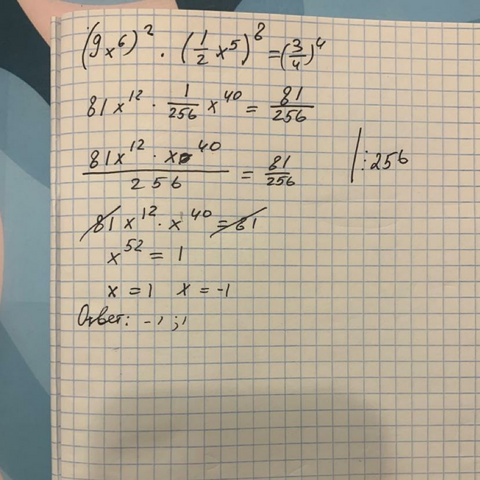 (9x⁶)² · (1/2 x⁵)⁸ = (3/4)⁴
81x¹² · 1/256 x⁴⁰ = 81/256
81x¹² · x⁴⁰ / 256 = 81/256 | : 256
81x¹² · x⁴⁰ = 81
x⁵² = 1
x = 1 x = -1
Ответ: -1 ; 1